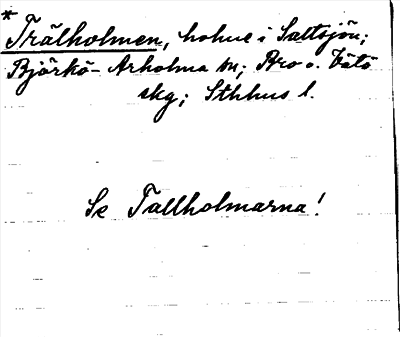 *Trälholmen, holme i Saltsjön;
Björkö-Arholma sn; Bro o. Vätö
skg; Sthlms l.
Se Tallholmarna!